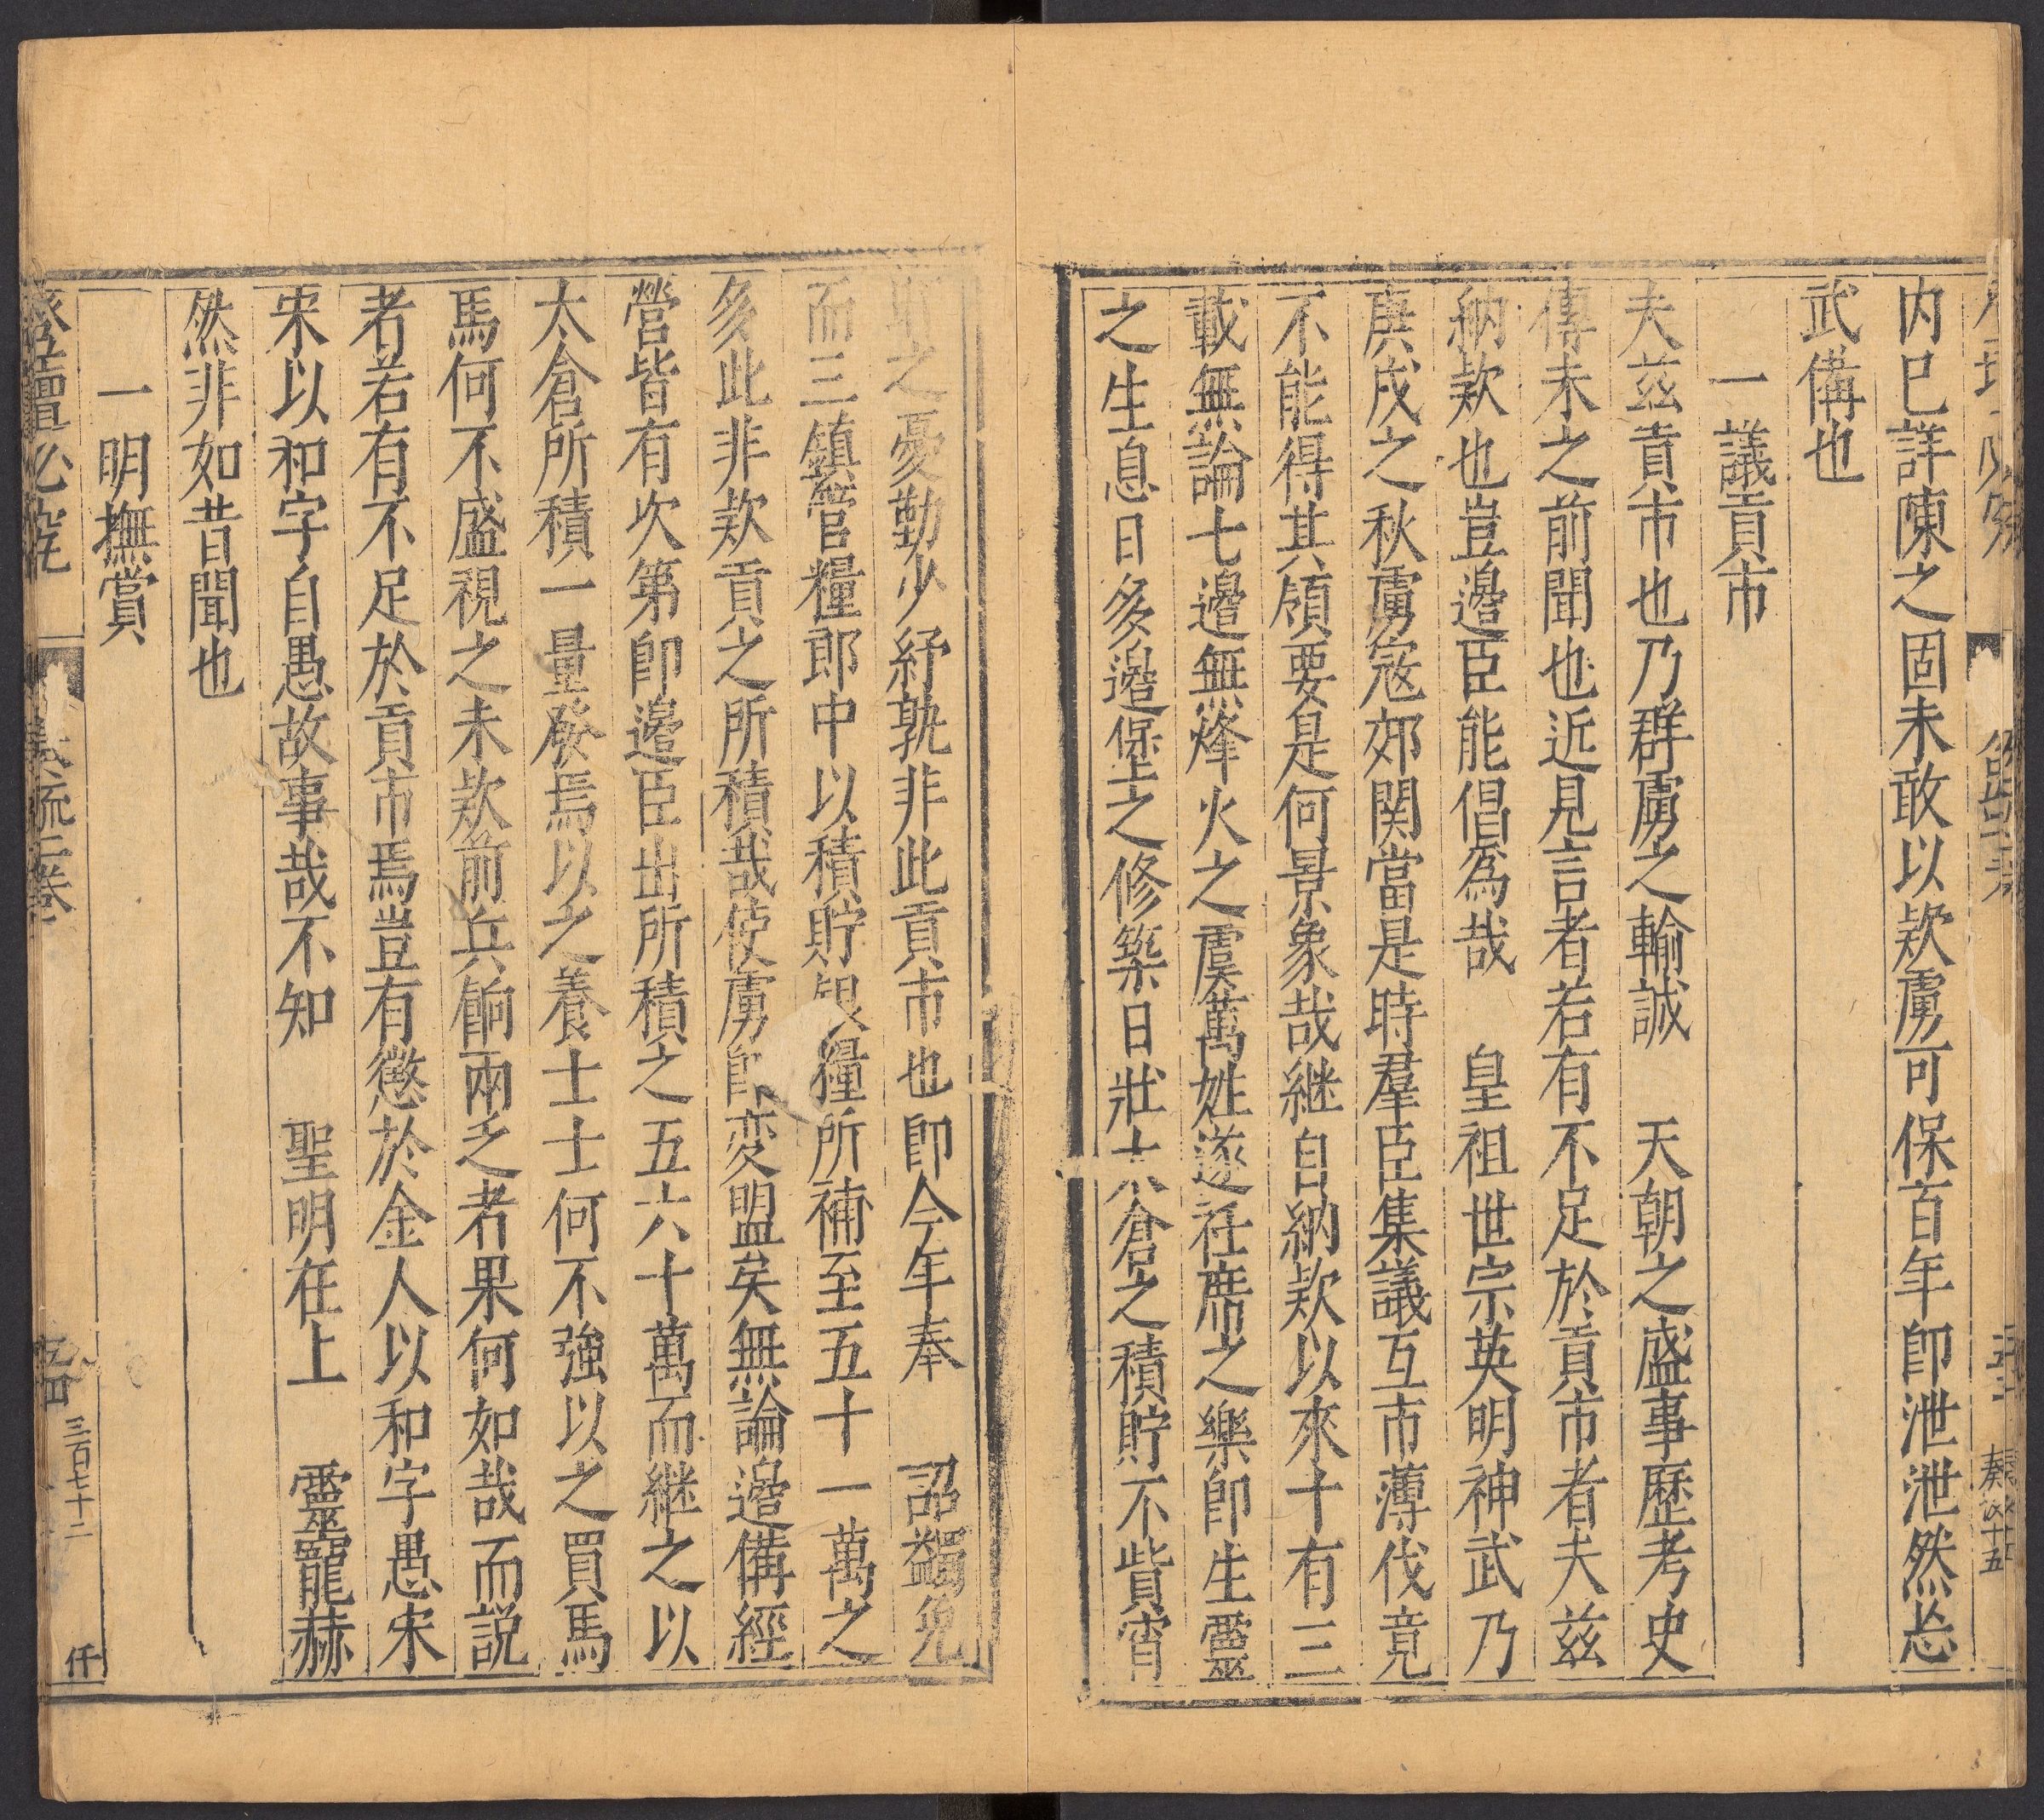 内巳詳陳之固未敢以欵虜可保百年卽泄泄然忘
武備也
一議貢市
夫茲貢市也乃群虜之輸誠　天朝之盛事歷考史
傳未之前聞也近見言者若有不足於貢市者夫茲
納欵也豈邊臣能倡爲哉　皇祖世宗英明神武乃
庚戌之秋虜寇郊関當是時羣臣集議互市薄伐竟
不能得其領要是何景象哉継自納欵以來十有三
載無論七邊無烽火之虞萬姓遂袵席之樂卽生靈
之生息日多邊堡之修築日壯太倉之積貯不貲宵
之憂勤少紓孰非此貢市也卽今年奉　詔蠲免
而三鎮管糧郎中以積貯銀糧所補至五十一萬之
多此非欵貢之所積哉使虜卽変盟矣無論邊備經
營皆有次第卽邊臣出所積之五六十萬而継之以
太倉所積一量發焉以之養士士何不強以之買馬
馬何不盛視之未欵前兵餉兩乏者果何如哉而説
者若有不足於貢市焉豈有懲於金人以和字愚宋
宋以和字自愚故事哉不知　聖明在上　靈寵赫
然非如昔聞也
一明撫賞
登壇必究　奏疏二卷　三百七十二　仟